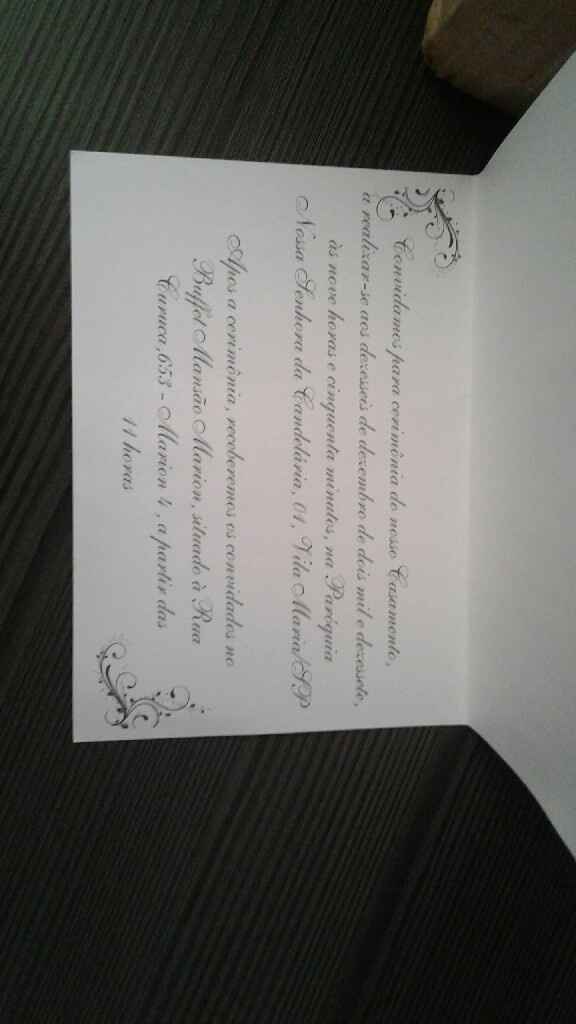 Convidamos para cerimônia do nosso Casamento,
a realizar-se aos dezesseis de dezembro de dois mil e dezessete,
às nove horas e cinquenta minutos, na Paróquia
Nossa Senhora da Candelária, 01, Vila Maria/SP
Apos a cerimônia, receberemos os convidados no
Buffet Mansão Marion, situado à Rua
Curuca, 653 - Marion 4, a partir das
11 horas